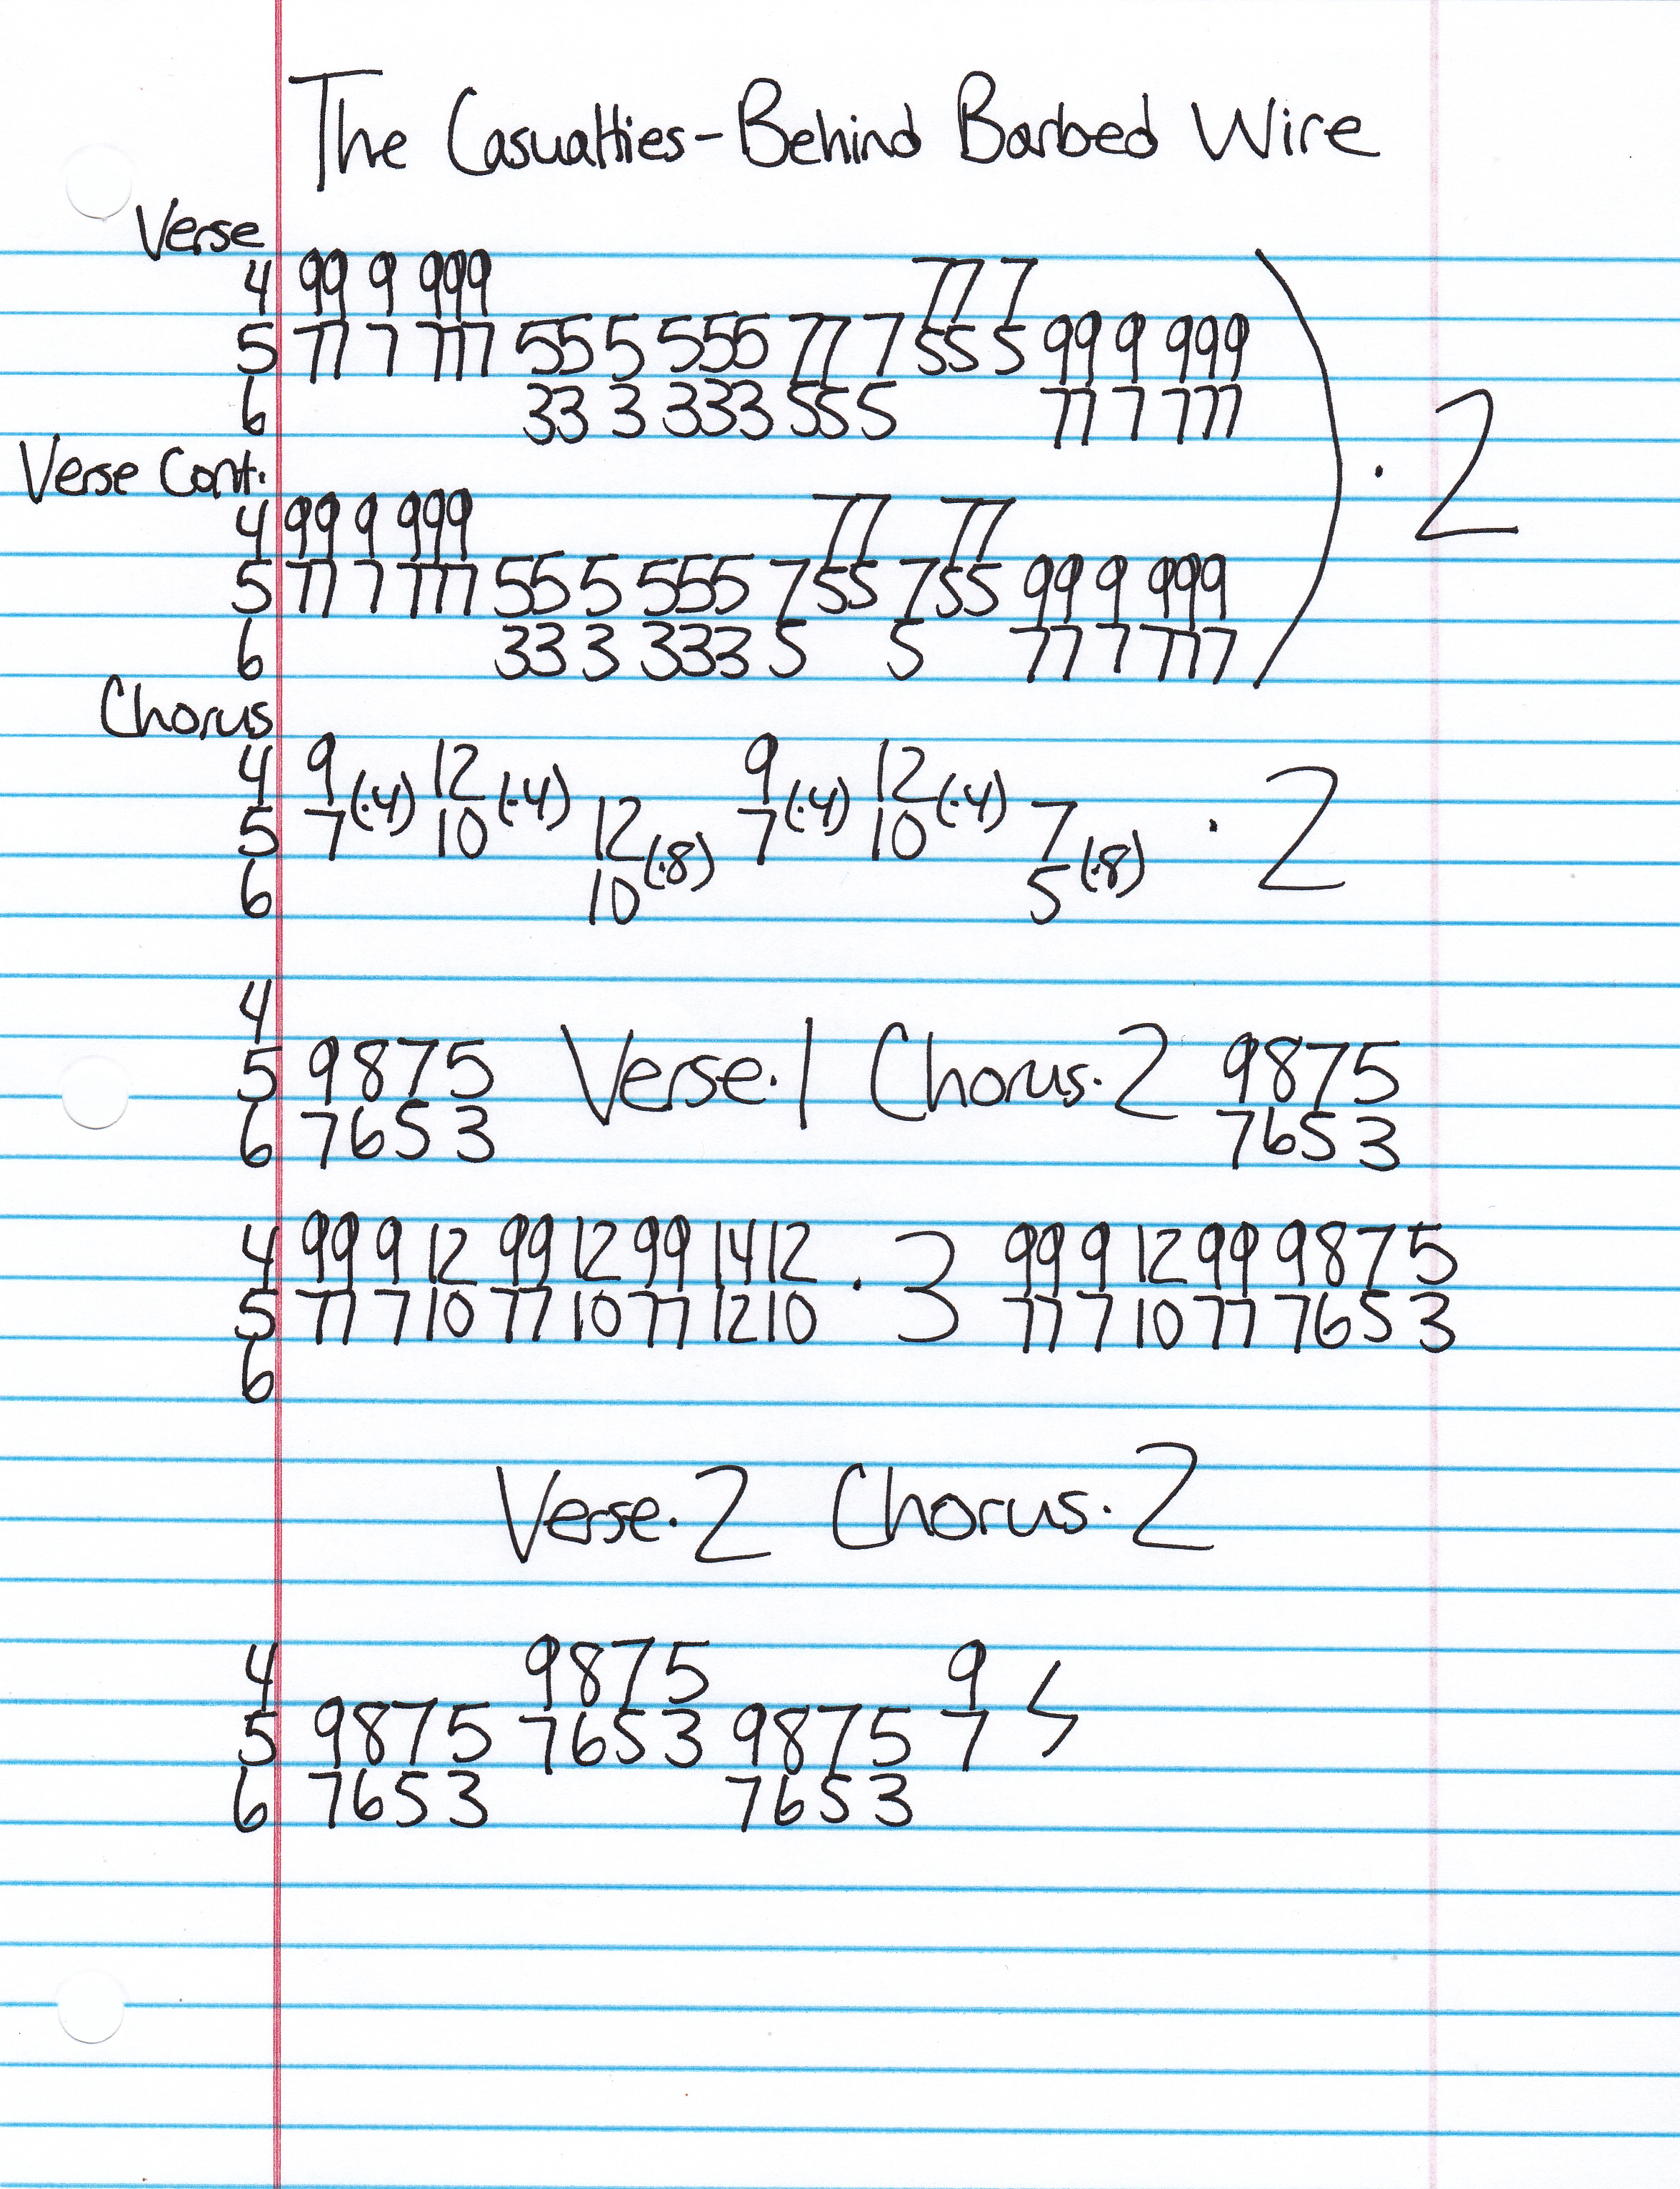 The Casualties - Behind Barbed Wire
Verse
4 99 9 999 77 7
5 77 7 777 55 5 555 77 7 55 5 99 9 999
6 33 3 333 55 5 77 7 777
) · 2
Verse Cont.
4 99 9 999 77 77
5 77 7 777 55 5 555 7 55 7 55 99 9 999
6 33 3 333 5 5 77 7 777
Chorus
4 9 (·4) 12 (·4) 9 (·4) 12 (·4)
5 7 10 12 (·8) 7 10 7 (·8) · 2
6 10 5
4
5 9875 Verse · 1 Chorus · 2 9875
6 7653 7653
4 99 9 12 99 12 99 14 12 · 3 99 9 12 99 9875
5 77 7 10 77 10 77 12 10 77 7 10 77 7653
6
Verse · 2 Chorus · 2
4 9875 9
5 9875 7653 9875 7
6 7653 7653